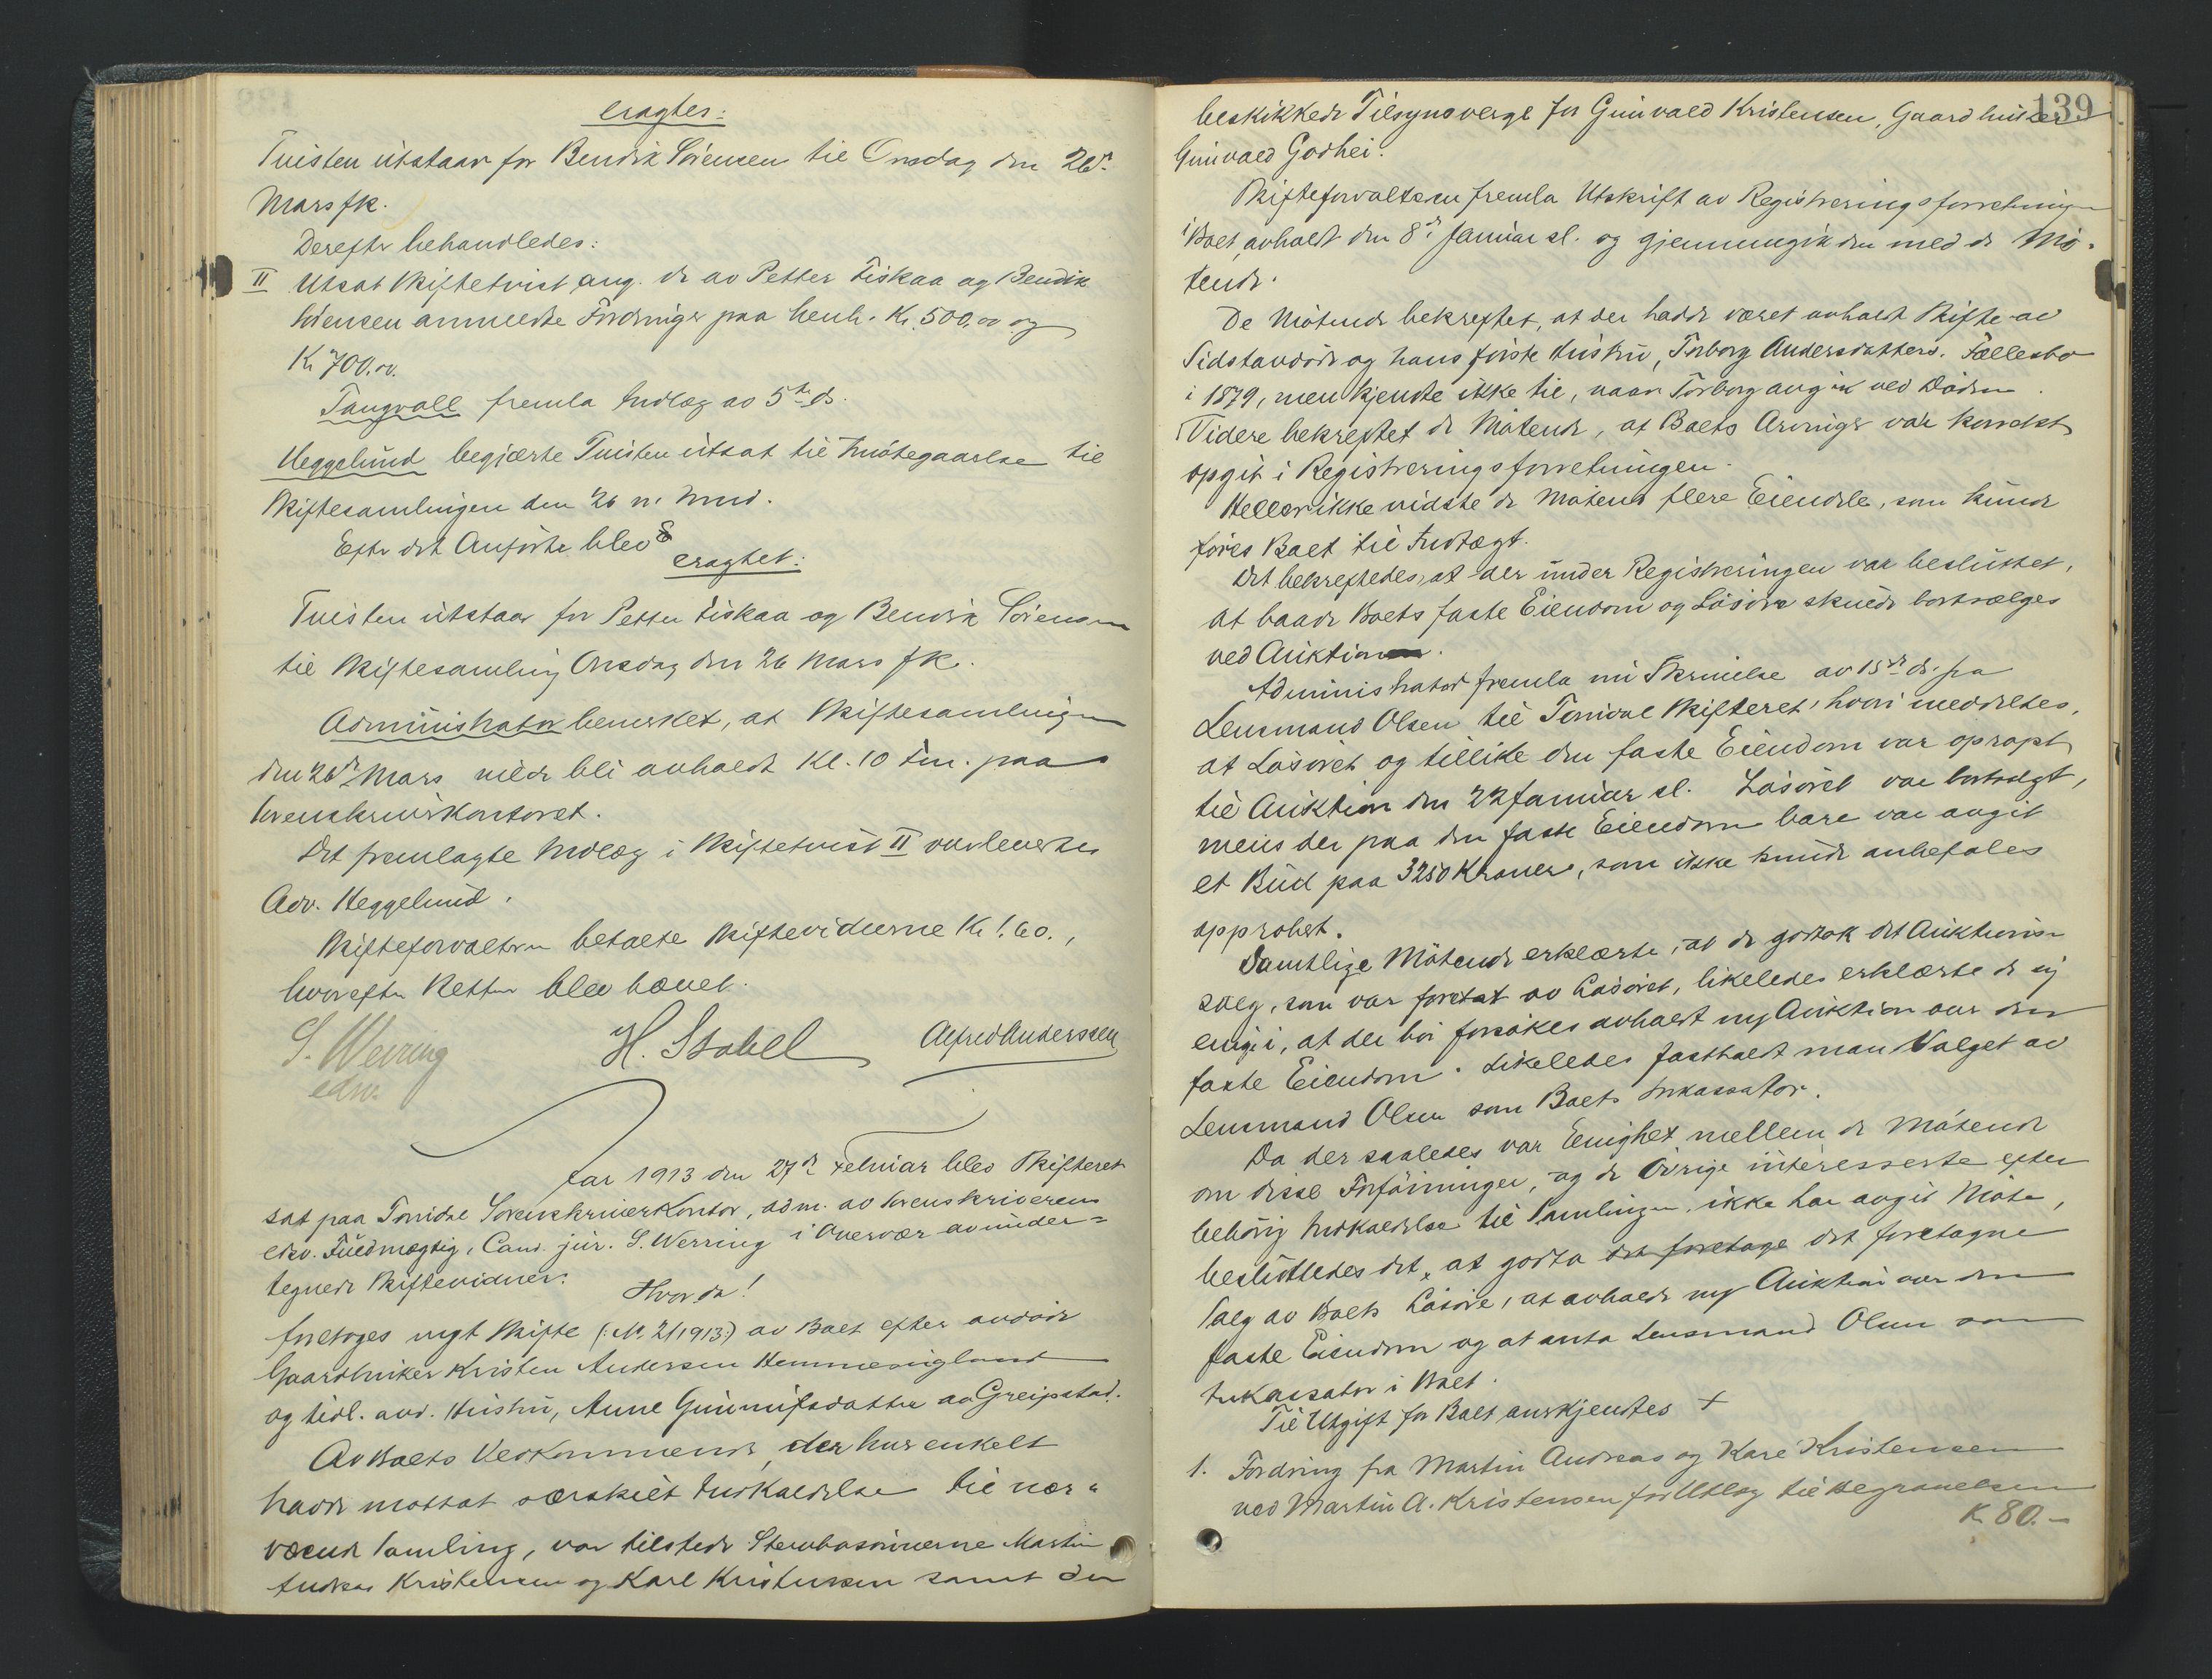 eragtes:
Tvisten utstaar for Bendix Sörensen til Onsdag den 26de
Mars fk.
Derefter behandledes:
II Utsat Skiftetvist ang. de av Petter Fiskaa og Bendix
Sörensen anmeldte Fordringer paa henh. Kr. 500,00 og
Kr 700.00.
Tangvall fremla Indlæg av 5te ds.
Heggelund begjærte Tvisten utsat til Imötegaaelse til
Skiftesamlingen den 26 n. Mnd.
Efter det Anförte blev
eragtet:
Tvisten utstaar for Petter Fiskaa og Bendix Sörensen
til Skiftesamling Onsdag den 26 Mars fk.
Administrator bemerket, at Skiftesamlingen
den 26de Mars vilde bli avholdt Kl. 10 Fm. paa
Sorenskriverkontoret.
Det fremlagte Indlæg i Skiftetvist II overleveres
Adv. Heggelund.
Skifteforvalteren betalte Skiftevidnerne Kr 1.60.,
hvorefter Retten blev hævet.
S. Werring
edsv.
H. Stabel
Alfred Anderssen
Aar 1913 den 27de Februar blev Skifteret
sat paa Torridal Sorenskriverkontor, adm. av Sorenskriverens
edsv. Fuldmægtig, Cand. jur. S. Werring i Overvær av under-
tegnede Skiftevidner:
Hvorda!
foretoges nyt Skifte (: No. 2/1913:) av Boet efter avdöde
Gaardbruker Kristen Andersen Hemmesigland
og tidl. avd. Hustru, Anne Gunnufsdatter av Greipstad.
Av Boets Vedkommende, der hver enkelt
hadde mottat særskilt Indkaldelse til nær-
værende Samling, var tilstede Stervbosönnerne Martin
Andreas Kristensen og Karl Kristensen samt den
139
beskikkede Tilsynsverge for Gunvald Kristensen, Gaardbruker
Gunvald Godhei.
Skifteforvalteren fremla Utskrift av Registreringsforretningen
i Boet, avholdt den 8de Januar sl. og gjennemgik den med de Mö-
tende.
De Mötende bekreftet, at der hadde været avholdt Skifte av
Sidstavdöde og hans förste Hustru, Torborg Andersdatters. Fællesbo
i 1879, men kjendte ikke til, naar Torborg avgik ved Döden.
Videre bekreftet de Mötende, at Boets Arvinger var korrekt
opgit i Registreringsforretningen.
Heller ikke vidste de Mötende flere Eiendele, som kunde
föres Boet til Indtægt.
Det bekreftedes, at der under Registreringen var besluttet,
at baade Boets faste Eiendom og Lösöre skulde bortsælges
ved Auktion.
Administrator fremla nu Skrivelse av 15de ds. fra
Lensmand Olsen til Torridal Skifteret, hvori meddeltes,
at Lösöret og tillike den faste Eiendom var opropt
til Auktion den 22 Januar sl. Lösöret var bortsolgt,
mens der paa den faste Eiendom bare var avgit
et Bud paa 3250 Kroner, som ikke kunde anbefales
approbert.
Samtlige Mötende erklærte, at de godtok det Auktions-
salg, som var foretat av Lösöret, likeledes erklærte de sig
enig i, at der bör forsökes avholdt ny Auktion over den
faste Eiendom. Likeledes fastholdt man Valget av
Lensmand Olsen som Boets Inkassator.
Da der saaledes var Enighet mellem de Mötende
om disse Forföininger, og de övrige interesserte efter
behörig Indkaldelse til Samlingen ikke har avgit Möte,
besluttedes det, at godta det foretage det foretagne
Salg av Boets Lösöre, at avholde ny Auktion over den
faste Eiendom og at anta Lensmand Olsen som
Inkassator i Boet.
Til Utgift for Boet anerkjendtes +
1. Fordring fra Martin Andreas og Karl Kristensen
ved Martin A. Kristensen for Utlæg til Begravelsen
Kr 80.—